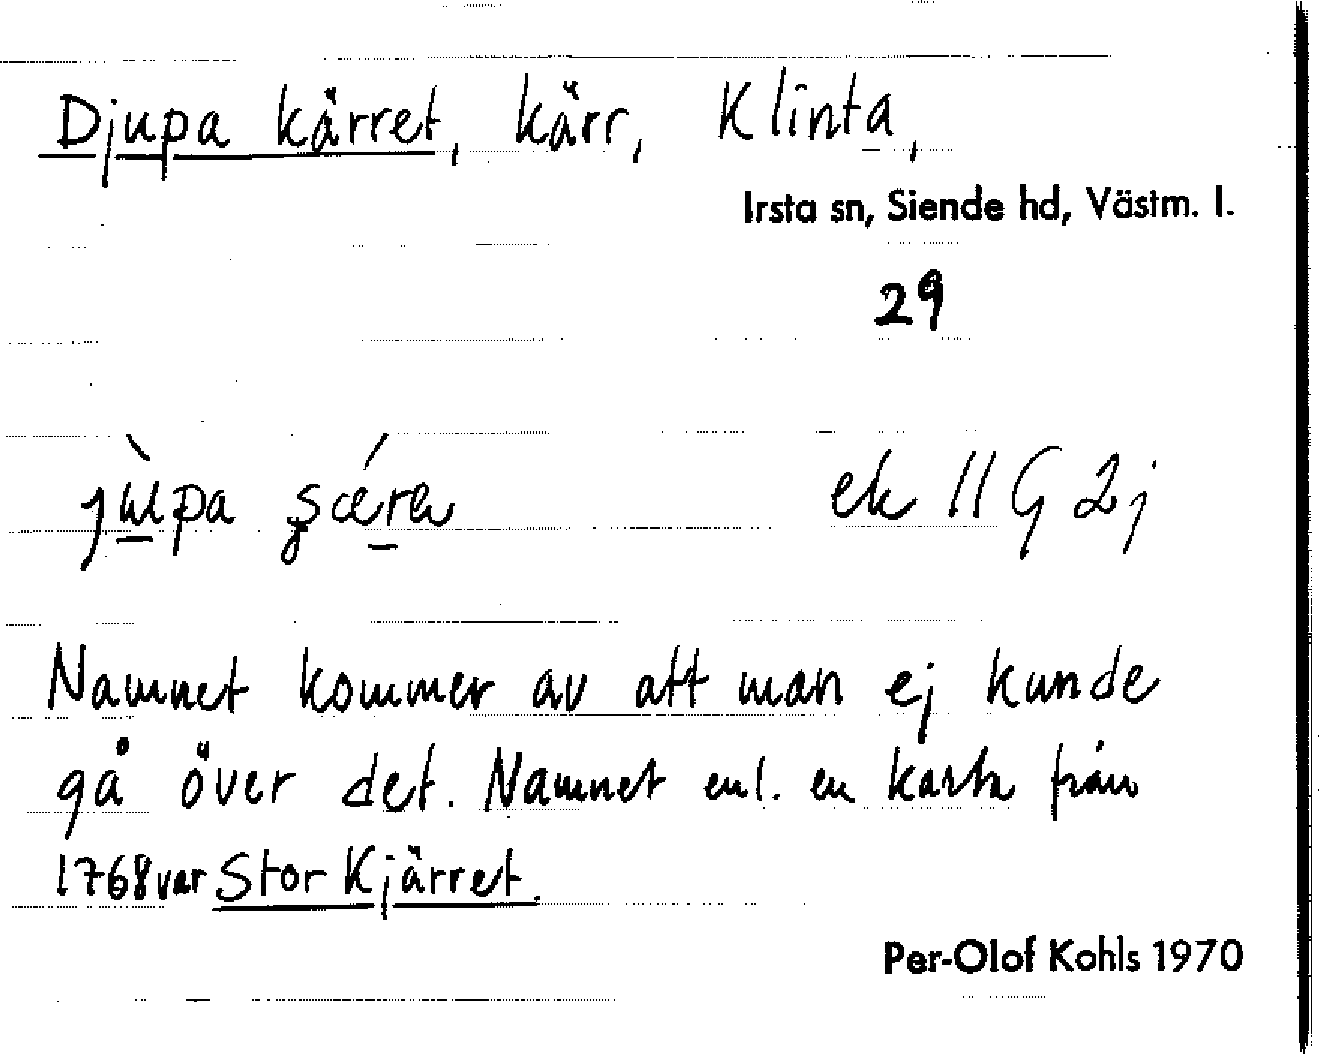 Djupa kärret, kärr, Klinta,
Irsta sn, Siende hd, Västm. l.
29
jùpa şǽra ek 11 G 2j
Namnet kommer av att man ej kunde
gå över det. Namnet enl. en karta från
1768 var Stor Kjärret.
Per-Olof Kohls 1970